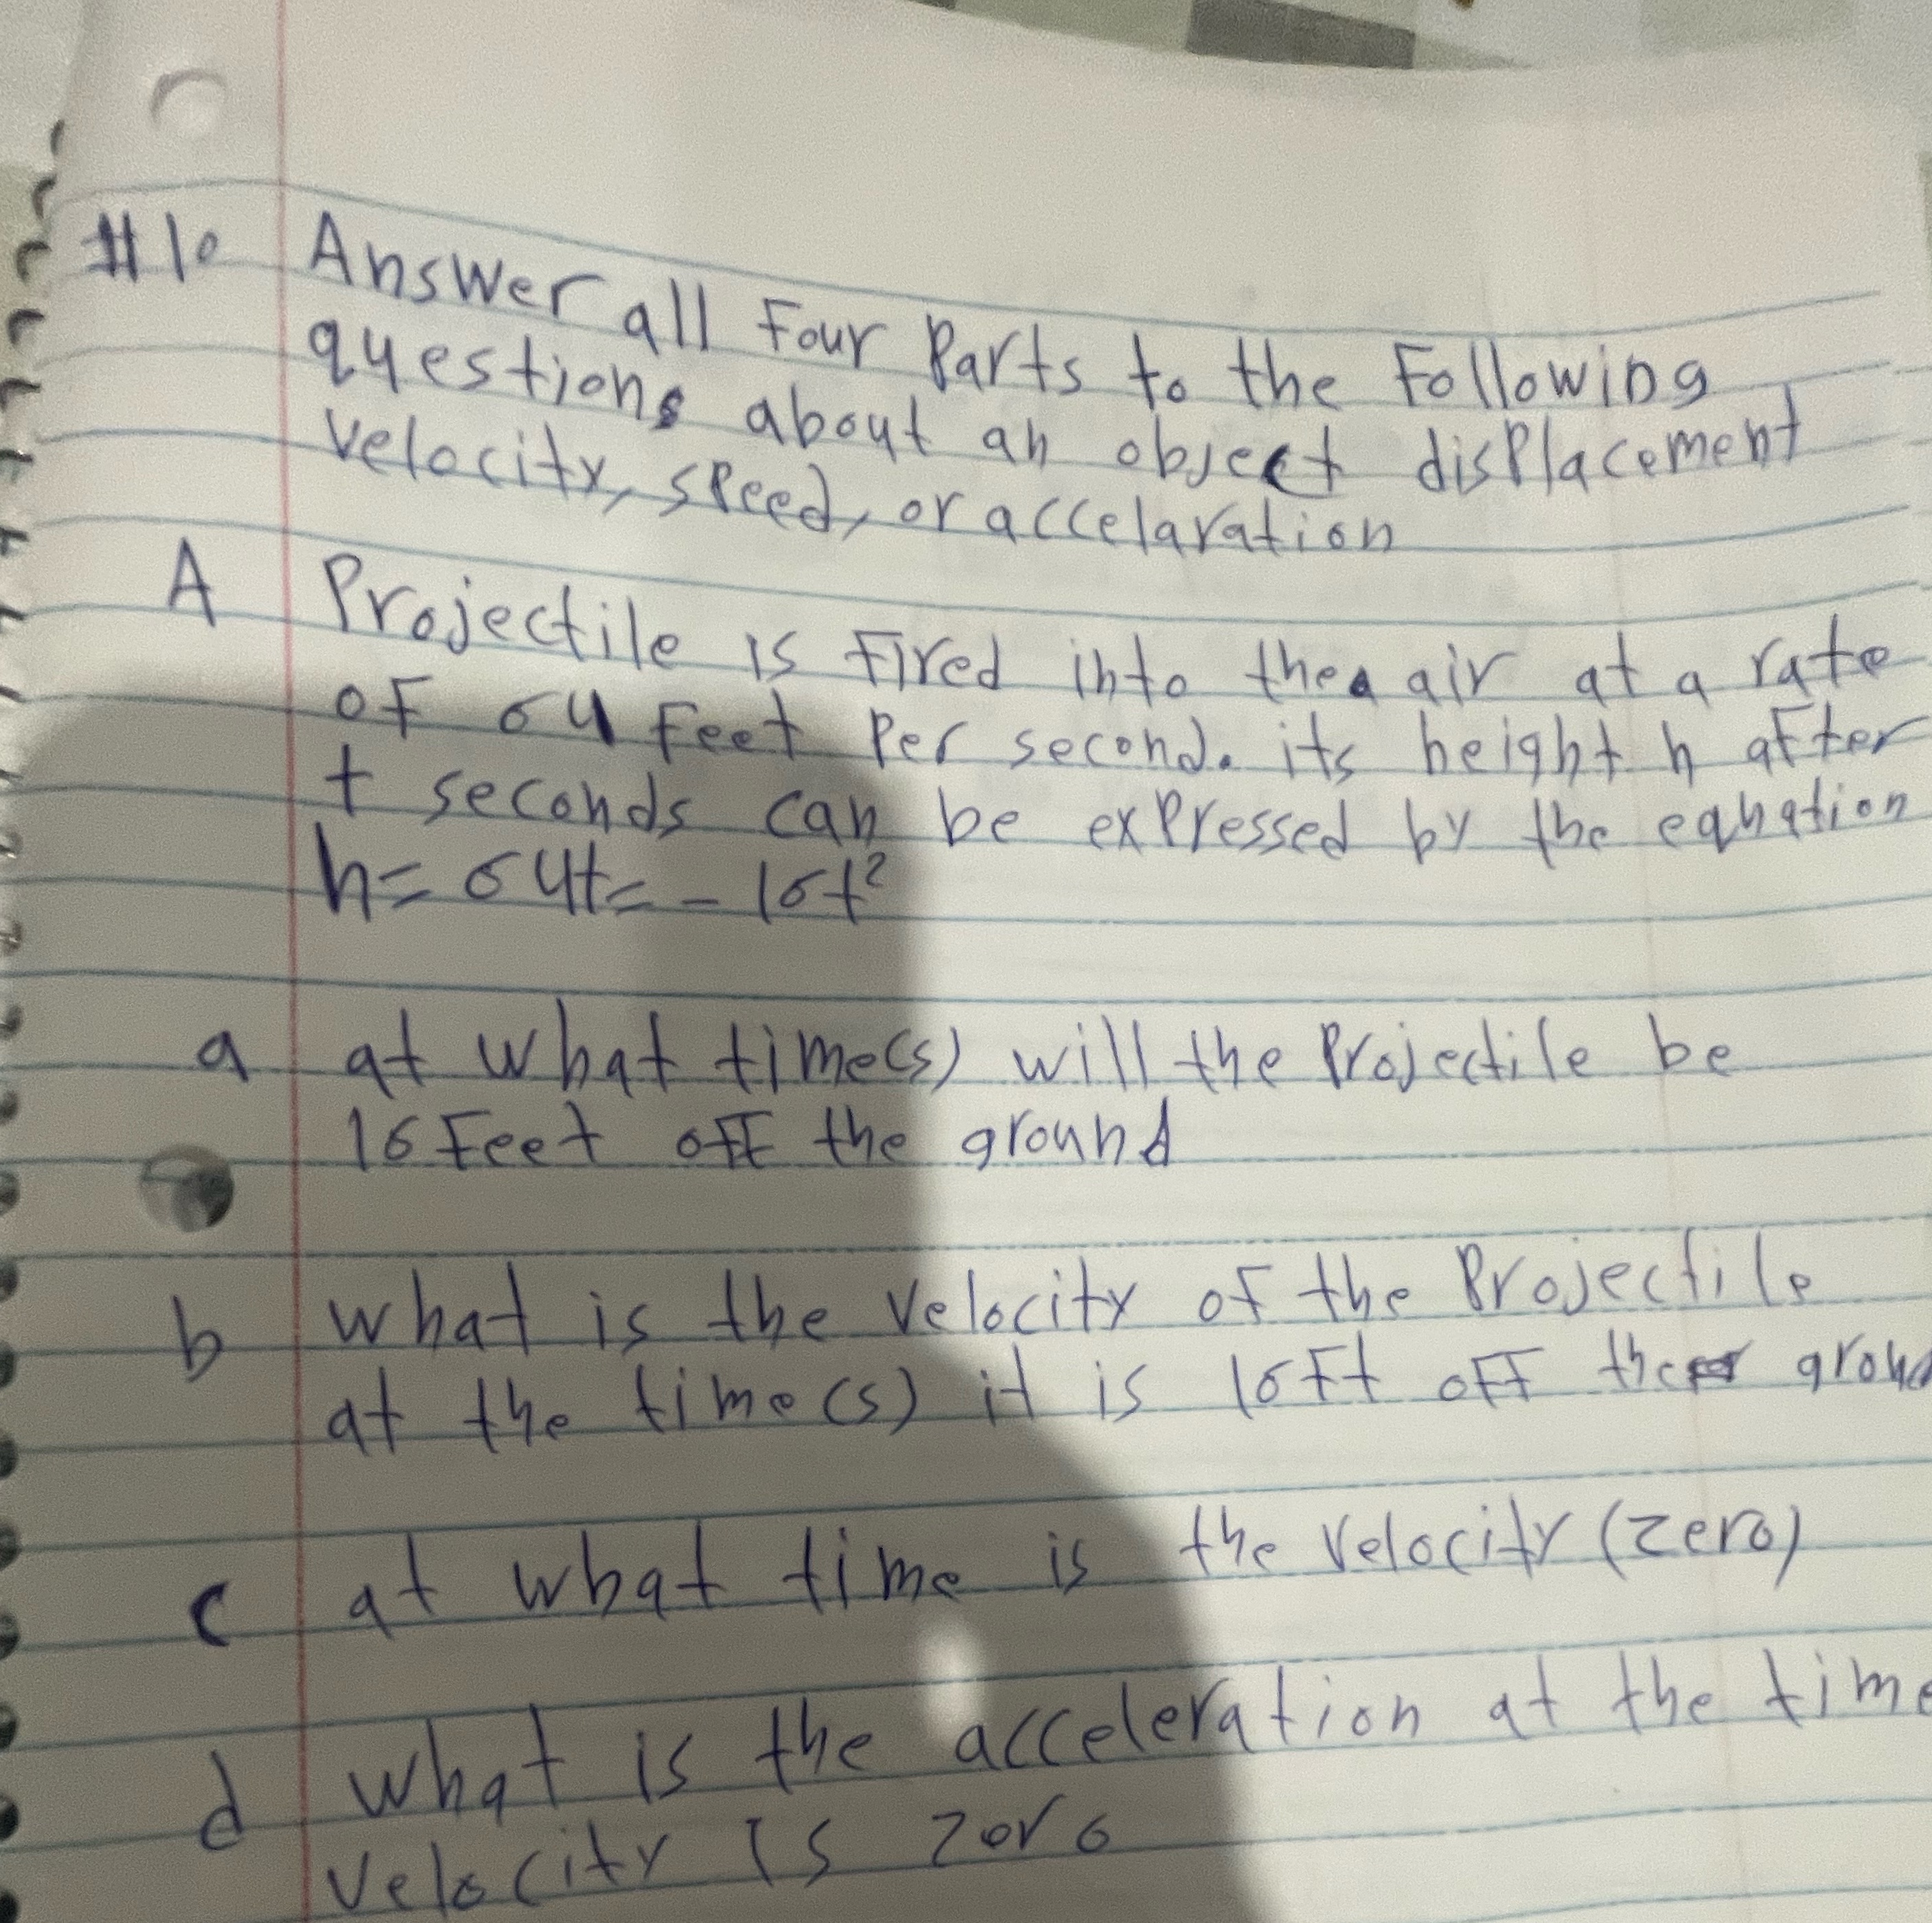 #10 Answer all Four Parts to the Following
questions about an object displacement
velocity, speed, or accelaration
A Projectile is fired into the air at a rate
of 64 feet per second. its height h after
t seconds can be expressed by the equation
h= 64t= - 16t²
a at what time(s) will the Projectile be
16 Feet off the ground
b what is the velocity of the Projectile
at the time(s) it is 16Ft off the groud
c at what time is the velocity (zero)
d what is the acceleration at the time
velocity is zoro